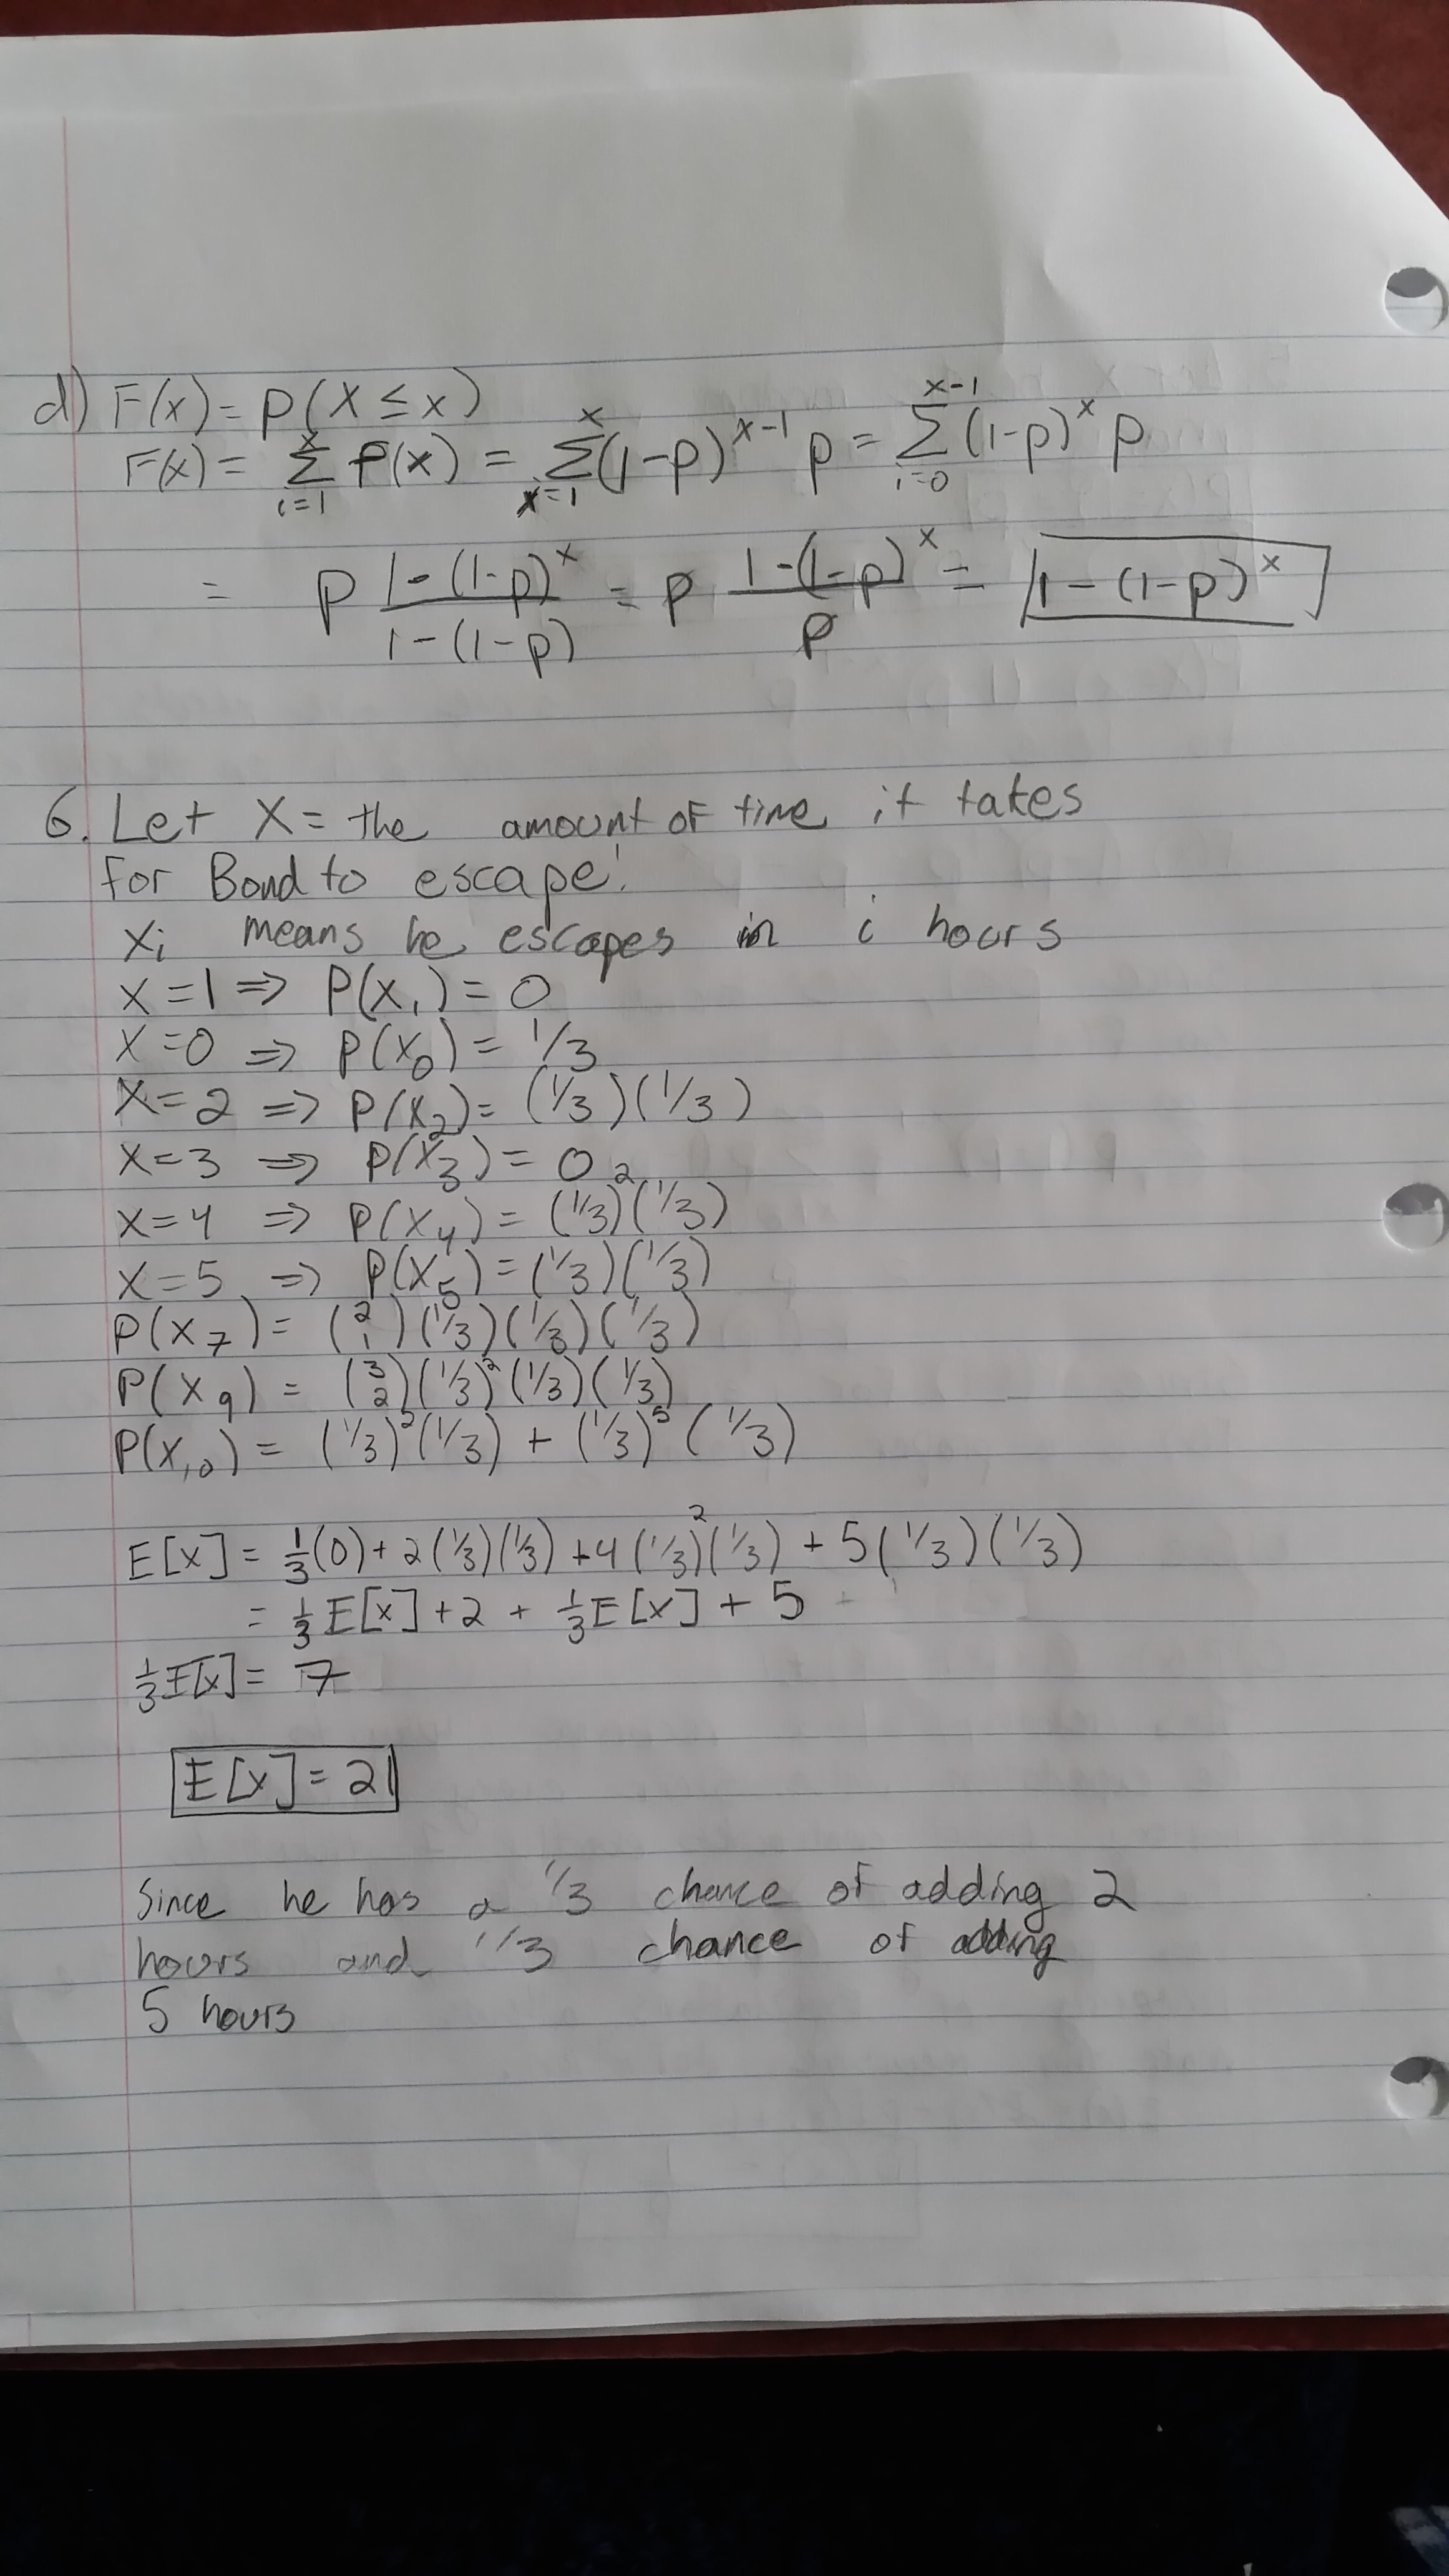 d) F(x) = P(X ≤ x)
F(x) = Σ_{i=1}^{x} f(x) = Σ_{x=1}^{x} (1-p)^{x-1} p = Σ_{i=0}^{x-1} (1-p)^x p
= p (1-(1-p)^x)/(1-(1-p)) = p (1-(1-p)^x)/p = 1-(1-p)^x
6. Let X = the amount of time it takes
for Bond to escape.
Xi means he escapes in i hours
X=1 => P(X₁) = 0
X=0 => P(X₀) = 1/3
X=2 => P(X₂) = (1/3)(1/3)
X=3 => P(X₃) = 0
X=4 => P(X₄) = (1/3)²(1/3)
X=5 => P(X₅) = (1/3)(1/3)
P(X₇) = (2 1)(1/3)(1/3)(1/3)
P(X₉) = (3 2)(1/3)²(1/3)(1/3)
P(X₁₀) = (1/3)²(1/3) + (1/3)⁵(1/3)
E[X] = 1/3(0) + 2(1/3)(1/3) + 4(1/3)²(1/3) + 5(1/3)(1/3)
= 1/3 E[X] + 2 + 1/3 E[X] + 5
1/3 E[X] = 7
E[X] = 21
Since he has a 1/3 chance of adding 2
hours and 1/3 chance of adding
5 hours